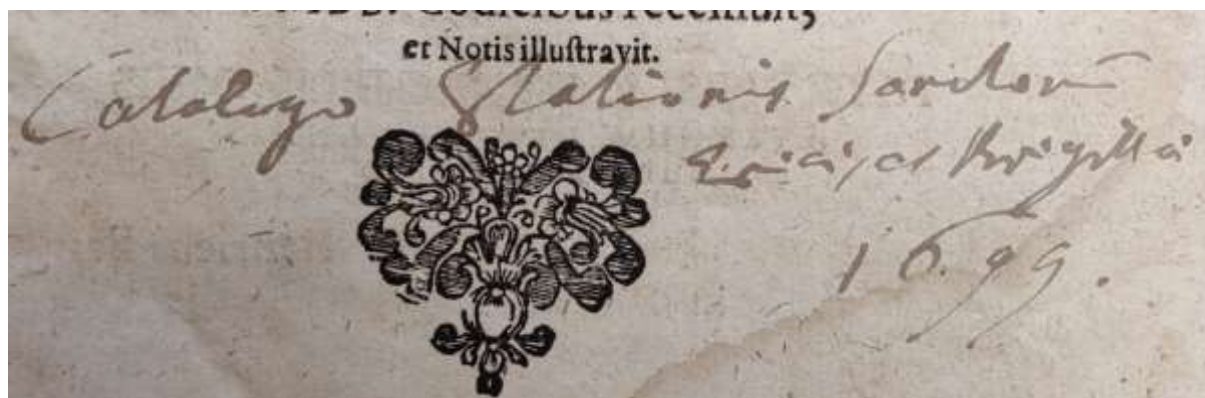 Codicibus recensuit,
et Notis illuſtravit.
Catalogo Stationis Sanctorū
Erici, et Brigittæ
1699.